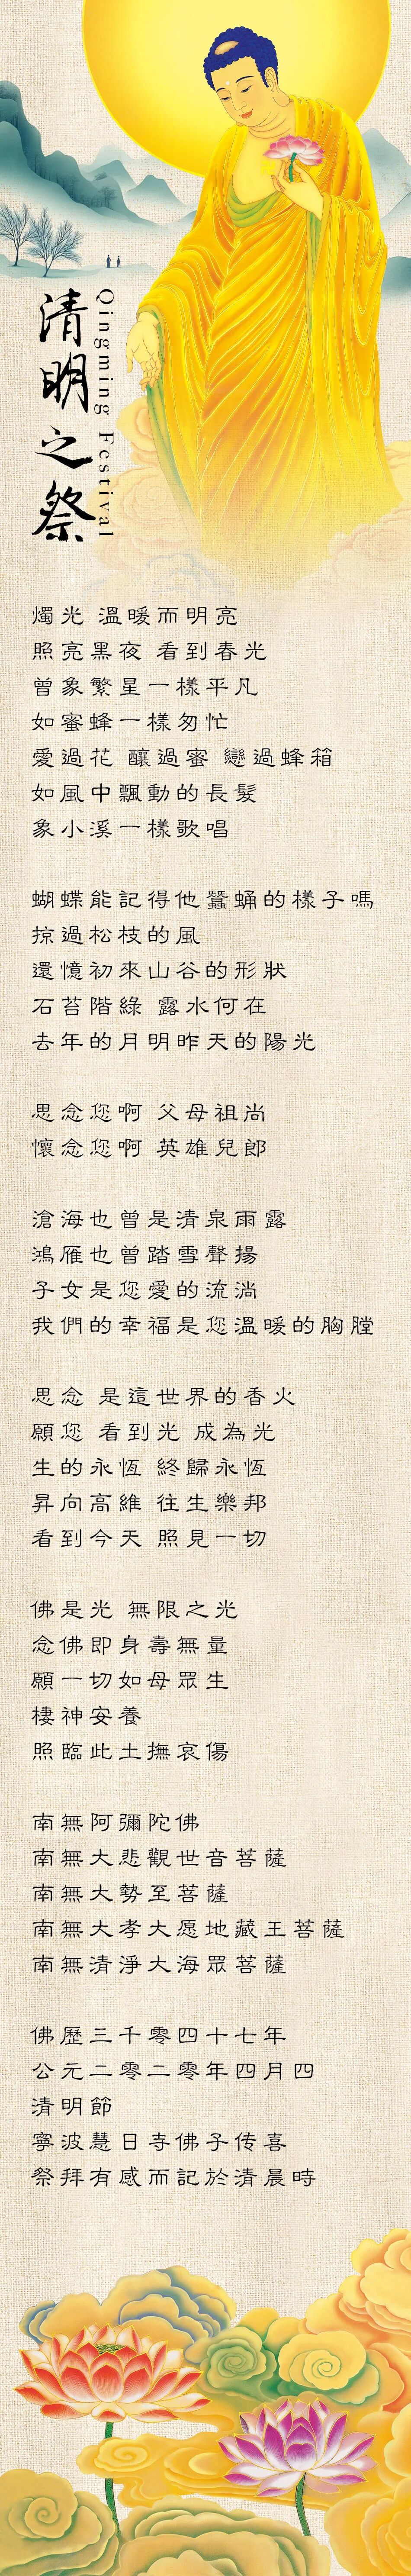 清明之祭
Qingming Festival
燭光 溫暖而明亮
照亮黑夜 看到春光
曾象繁星一樣平凡
如蜜蜂一樣匆忙
愛過花 釀過蜜 戀過蜂箱
如風中飄動的長髮
象小溪一樣歌唱
蝴蝶能記得他蠶蛹的樣子嗎
掠過松枝的風
還憶初來山谷的形狀
石苔階綠 露水何在
去年的月明昨天的陽光
思念您啊 父母祖尚
懷念您啊 英雄兒郎
滄海也曾是清泉雨露
鴻雁也曾踏雪聲揚
子女是您愛的流淌
我們的幸福是您溫暖的胸膛
思念 是這世界的香火
願您 看到光 成為光
生的永恆 終歸永恆
昇向高維 往生樂邦
看到今天 照見一切
佛是光 無限之光
念佛即身壽無量
願一切如母眾生
棲神安養
照臨此土撫哀傷
南無阿彌陀佛
南無大悲觀世音菩薩
南無大勢至菩薩
南無大孝大愿地藏王菩薩
南無清淨大海眾菩薩
佛歷三千零四十七年
公元二零二零年四月四
清明節
寧波慧日寺佛子传喜
祭拜有感而記於清晨時